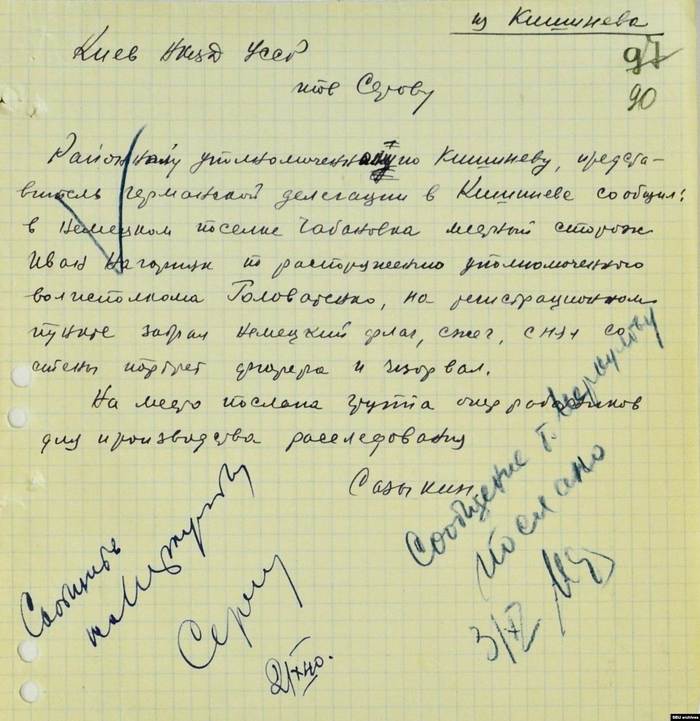 из Кишинева
97
90
Киев НКВД УССР
тов Серову
Районный уполномоченный по Кишиневу, предста-
витель германской делегации в Кишиневе сообщил:
в немецком поселке Чабановка местный сторож
Иван Нагорняк по распоряжению уполномоченного
волисполкома Головатенко, на регистрационном
пункте забрал немецкий флаг, сжег, снял со
стены портрет фюрера и изорвал.
На место послана группа опер работников
для производства расследования
Сазыкин
Сообщить
тов Меркулову
Серов
2/XI 40.
Сообщение т. Меркулову
послано
3/XI